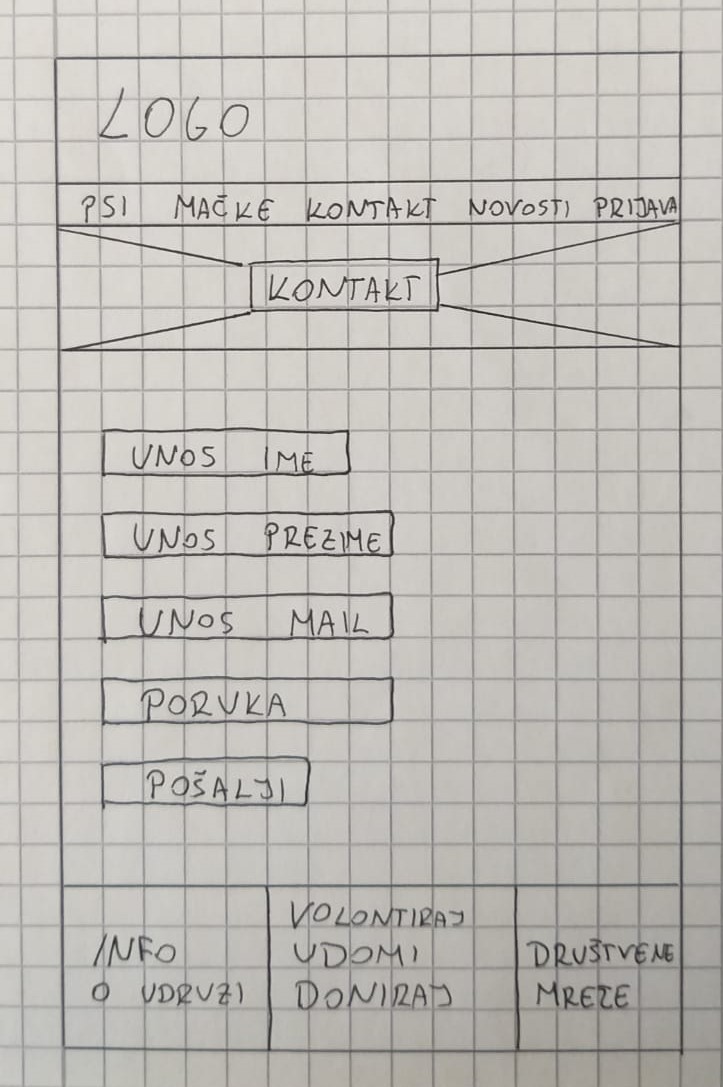 LOGO
PSI MAČKE KONTAKT NOVOSTI PRIJAVA
KONTAKT
UNOS IME
UNOS PREZIME
UNOS MAIL
PORUKA
POŠALJI
INFO
O UDRUZI
VOLONTIRAJ
UDOMI
DONIRAJ
DRUŠTVENE
MREŽE